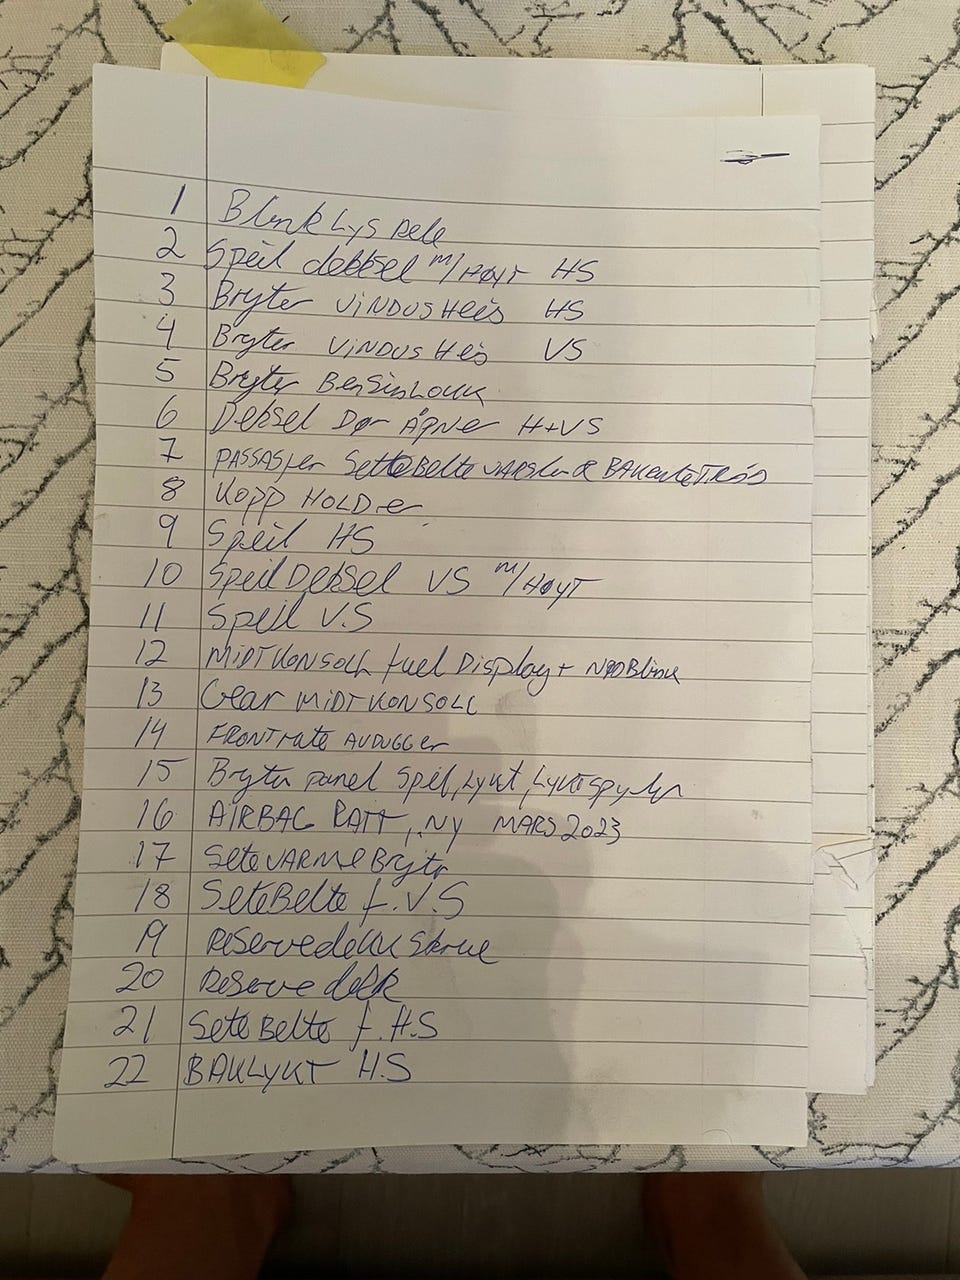 1 Blink Lys Rele
2 Speil debksel m/HØYT HS
3 Bryter VINDUSHeis HS
4 Bryter VINDUS Heis VS
5 Bryter BensinLOKK
6 Deksel Dør ÅPNer H+VS
7 PASSASJer SetteBelte
8 KOPP HOLDer
9 Speil HS
10 SpeilDeksel VS m/HØYT
11 Speil V.S
12 MIDTKONSOLL fuel Display + NØDBlink
13 Gear MIDTKONSOLL
14 FRONTrute AVDUGGer
15 Bryter panel Speil, Lykt, Lyktspyler
16 AIRBAG RATT, NY MARS 2023
17 SeteVARMe Bryter
18 SeteBelte f.V.S
19 Reservedekk Skrue
20 Reserve dekk
21 Sete Belte f.H.S
22 BAKLYKT H.S